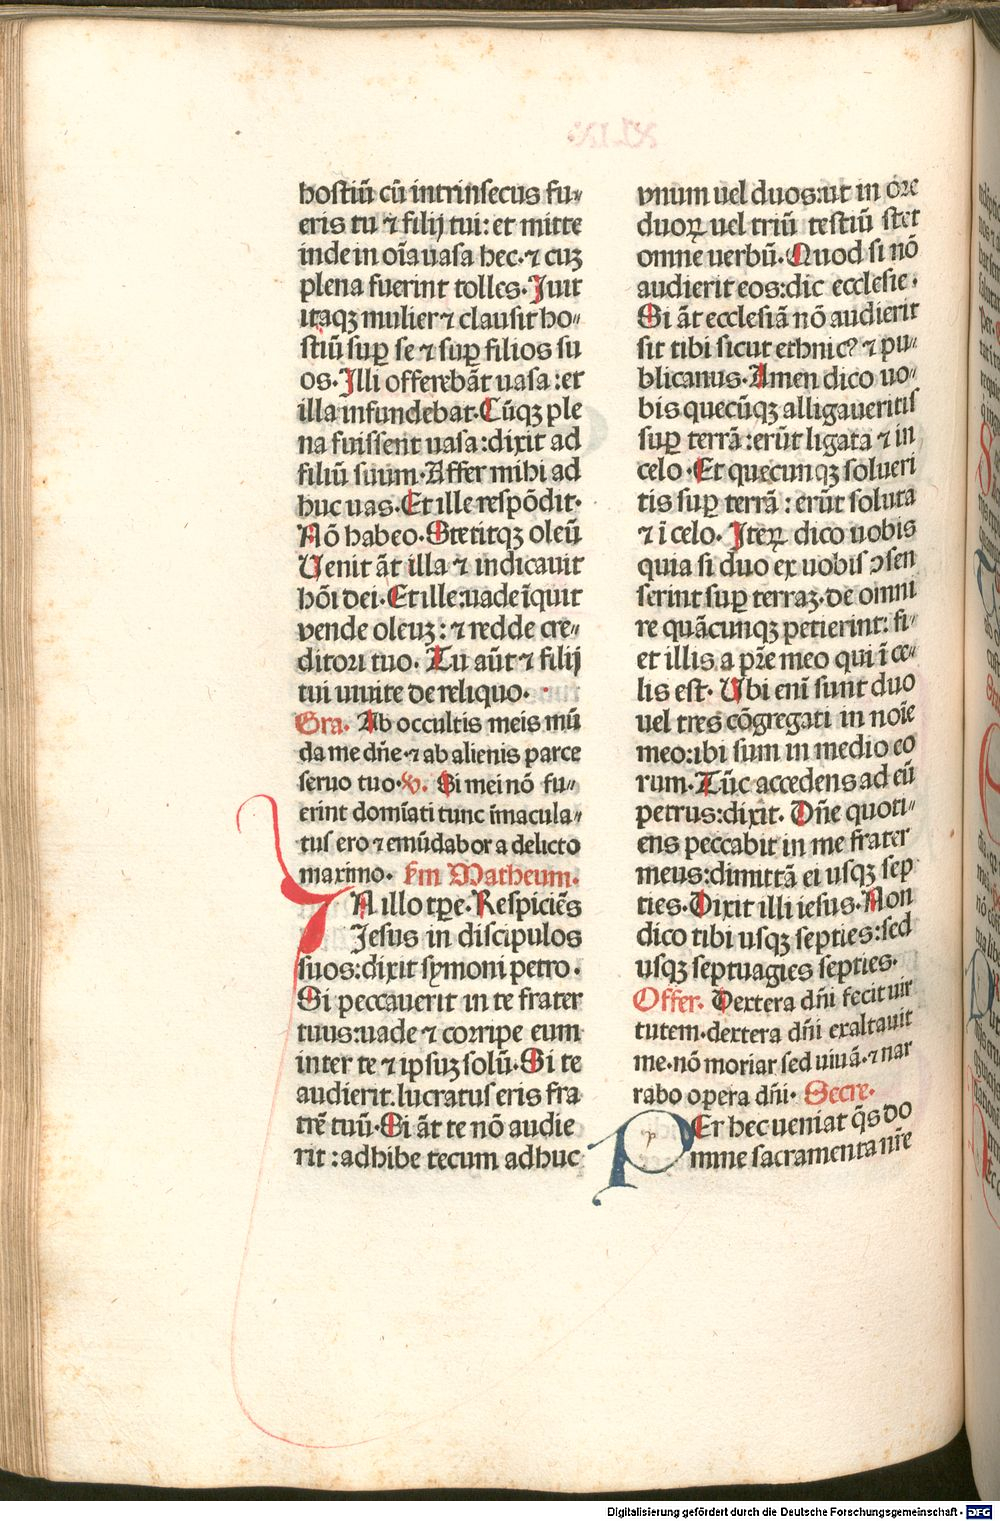 hostiũ cũ intrinsecus fu⸗
eris tu ⁊ filij tui: et mitte
inde in oĩa uasa hec·⁊ cuʒ
plena fuerint tolles· Juit
itaqʒ mulier ⁊ clausit ho⸗
stiũ suꝑ se ⁊ suꝑ filios su
os· Illi offerebãt uasa :et
illa infundebat· Cũqʒ ple
na fuissent uasa :dixit ad
filiũ suum· Affer mihi ad
huc uas· Et ille respõdit·
Nõ habeo· Stetitqʒ oleũ
Uenit ãt illa ⁊ indicauit
hõi dei· Et ille:uade ĩquit
vende oleuʒ: ⁊ redde cre⸗
ditori tuo· Tu aũt ⁊ filij
tui uiuite de reliquo·
Gra· Ab occultis meis mũ
da me dñe·⁊ ab alienis parce
seruo tuo·v̷· Si mei nõ fu⸗
erint domĩati tunc ĩmacula⸗
tus ero ⁊ emũdabor a delicto
maximo· ẜm Matheum·
IN illo tꝑe· Respiciẽs
Jesus in discipulos
suos:dixit symoni petro·
Si peccauerit in te frater
tuus:uade ⁊ corripe eum
inter te ⁊ ipsuʒ solũ· Si te
audierit.lucratus eris fra
trẽ tuũ· Si ãt te nõ audie
rit :adhibe tecum adhuc
vnum uel duos:ut in ore
duoꝝ uel triũ testiũ stet
omne uerbũ· Quod si nõ
audierit eos:dic ecclesie·
Si ãt ecclesiã nõ audierit
sit tibi sicut ethnicꝰ ⁊ pu⸗
blicanus· Amen dico uo⸗
bis quecũqʒ alligaueritis
suꝑ terrã :erũt ligata ⁊ in
celo· Et quecunqʒ solueri
tis suꝑ terrã : erũt soluta
⁊ ĩ celo· Iteꝝ dico uobis
quia si duo ex uobis ↄsen
serint suꝑ terraʒ·de omni
re quãcunqʒ petierint: fi⸗
et illis a pr̃e meo qui ĩ ce⸗
lis est· Ubi enĩ sunt duo
uel tres cõgregati in noĩe
meo:ibi sum in medio eo
rum· Tũc accedens ad eũ
petrus:dixit· Dñe quoti⸗
ens peccabit in me frater
meus:dimittã ei usqʒ sep
ties· Dixit illi iesus· Non
dico tibi usqʒ septies:sed
usqʒ septuagies septies·
Offer· Dextera dñi fecit uir
tutem·dextera dñi exaltauit
me·nõ moriar sed uiuã·⁊ nar
rabo opera dñi· Secre·
PEr hec ueniat q̃s do
mine sacramenta nr̃e
Digitalisierung gefördert durch die Deutsche Forschungsgemeinschaft - DFG